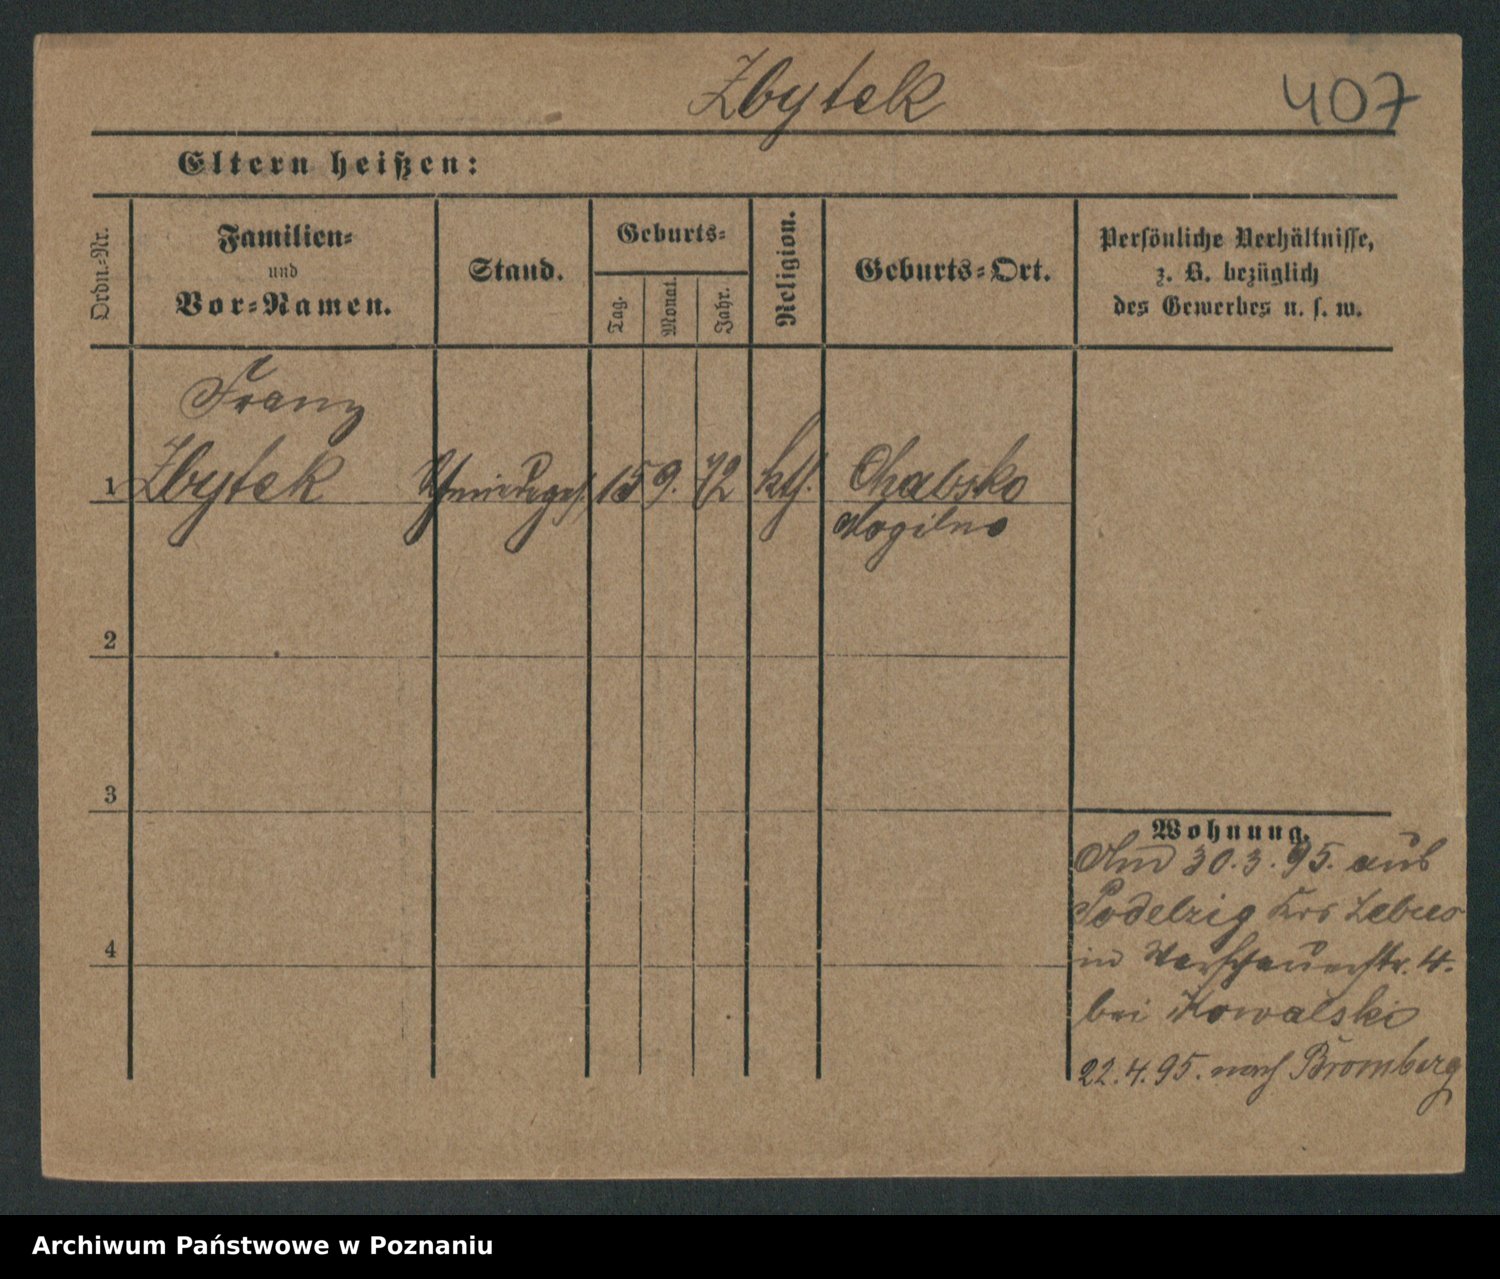 Zbytek 407
Eltern heißen:
Ordn.-Nr.
Familien-
und
Vor-Namen.
Stand.
Geburts-
Tag.
Monat.
Jahr.
Religion.
Geburts-Ort.
Persönliche Verhältnisse,
z. B. bezüglich
des Gewerbes u. s. w.
Franz
1 Zbytek Schmiedeges. 15 9. 72 kth. Chabsko
Mogilno
2
3
4
Wohnung.
Am 30.3.95. aus
Podelzig Krs Lebus
in Warschauerstr. 4.
bei Kowalski
22.4.95. nach Bromberg
Archiwum Państwowe w Poznaniu